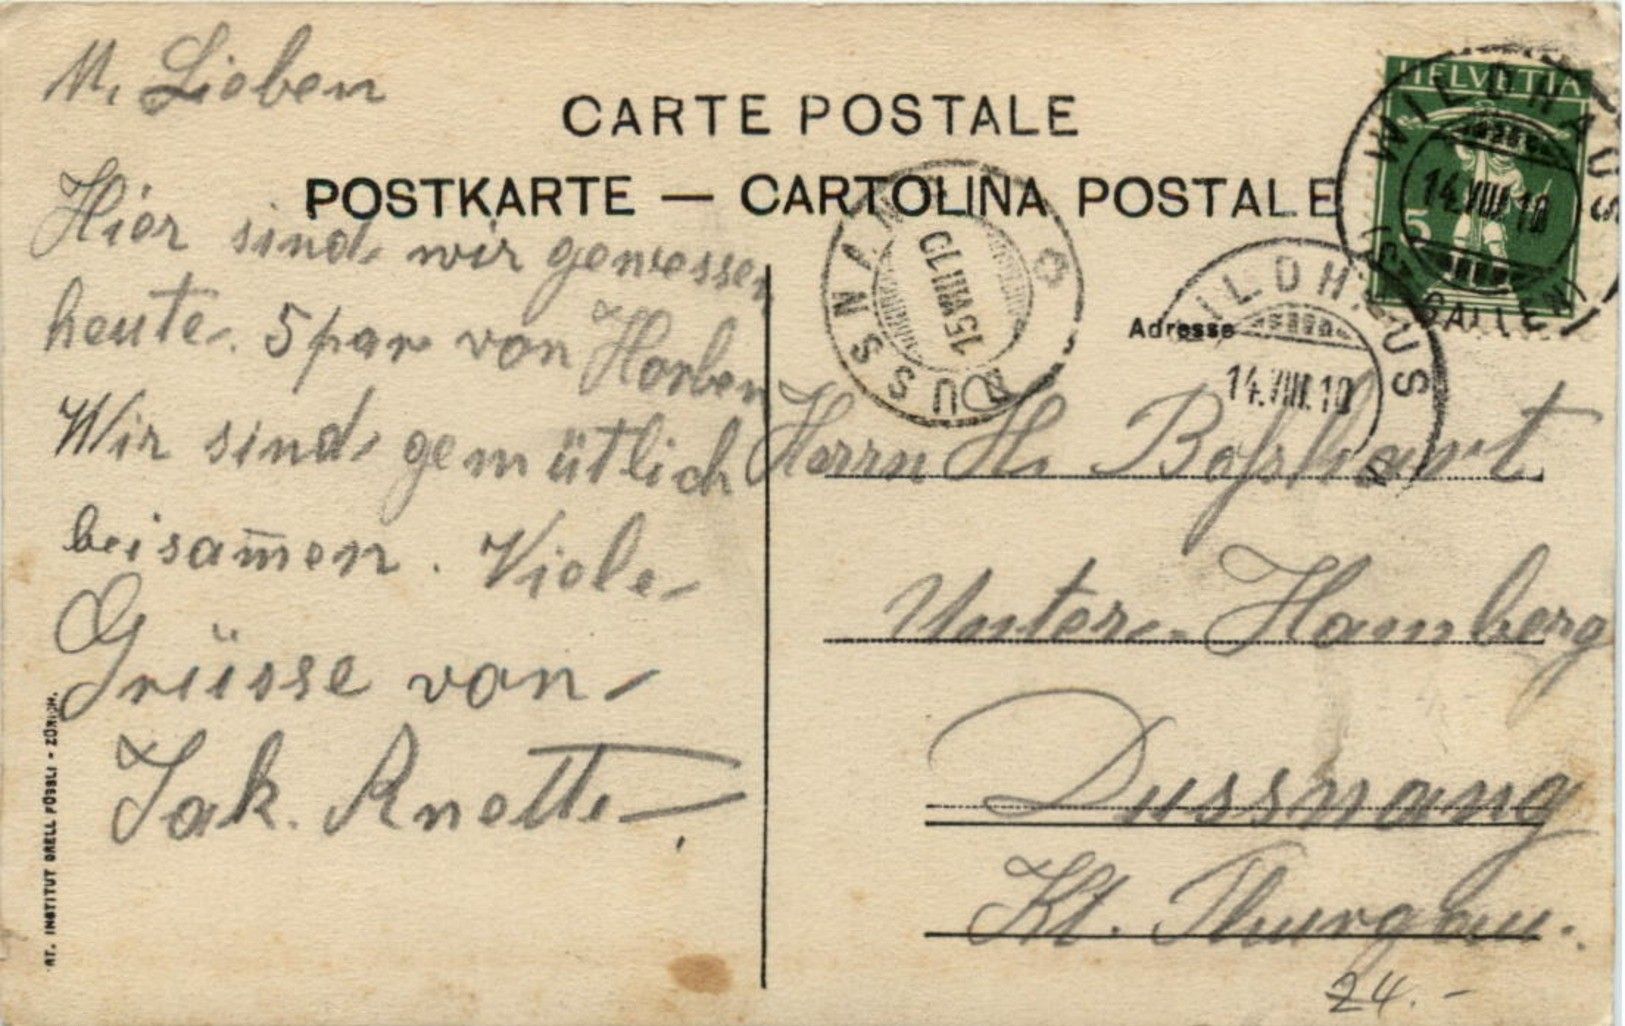 M. Lieben
CARTE POSTALE
POSTKARTE — CARTOLINA POSTALE
Hier sind wir gewessen
heute. 5 par von Horben
Wir sind gemütlich
beisam̅en. Viele
Grüsse von
Jak. Anette
AT. INSTITUT ORELL FÜSSLI - ZÜRICH.
HELVETIA
5
WILDHAUS
14.VIII.10
(ST. GALLEN)
DUSSNANG
15.VIII.10
WILDHAUS
14.VIII.10
Adresse
Herrn H. Bosshart
Unter-Hamberg
Dussnang
Kt. Thurgau.
24.-